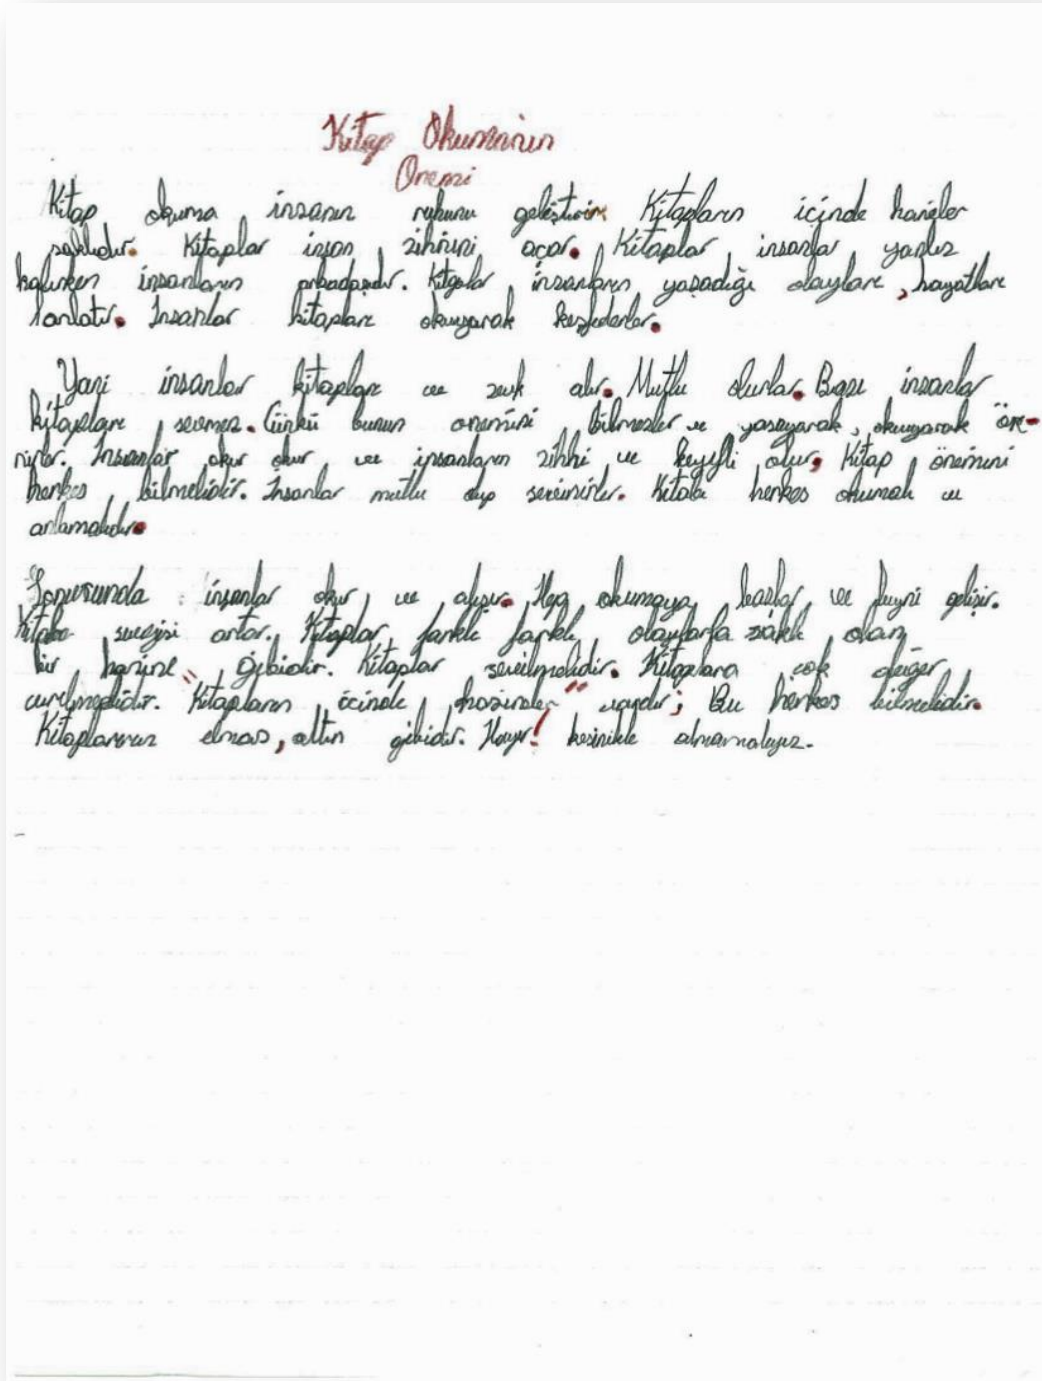 Kitap Okumanın
Önemi
Kitap okuma insanın ruhunu geliştirir. Kitapların içinde
saklıdır. Kitaplar insan zihnini açar. Kitaplar insanlar yanlız
kalırken insanların arkadaşıdır. Kitaplar insanların yaşadığı olayları, hayatları
anlatır. İnsanlar kitapları okuyarak keşfederler.
Yani insanlar kitapları ve zevk alır. Mutlu olurlar. Bazı insanlar
kitapları sevmez. Çünkü bunun önemini bilmezler ve yaşayarak, okuyarak öğ-
İnsanlar okur okur ve insanların zihni ve keyifli olur. Kitap önemini
herkes bilmelidir. İnsanlar mutlu olup sevinirler. Kitabı herkes okumalı ve
anlamalıdır.
Sonucunda insanlar okur ve alışır. Hep okumaya başlar ve beyni gelişir.
Kitaba sevgisi artar. Kitaplar farklı farklı olaylarla saklı olan
bir hazine" gibidir. Kitaplar sevilmelidir. Kitaplara çok değer
verilmelidir. Kitapların içinde hazineler" vardır; Bu herkes bilmelidir.
elmas, altın gibidir. ! kesinlikle